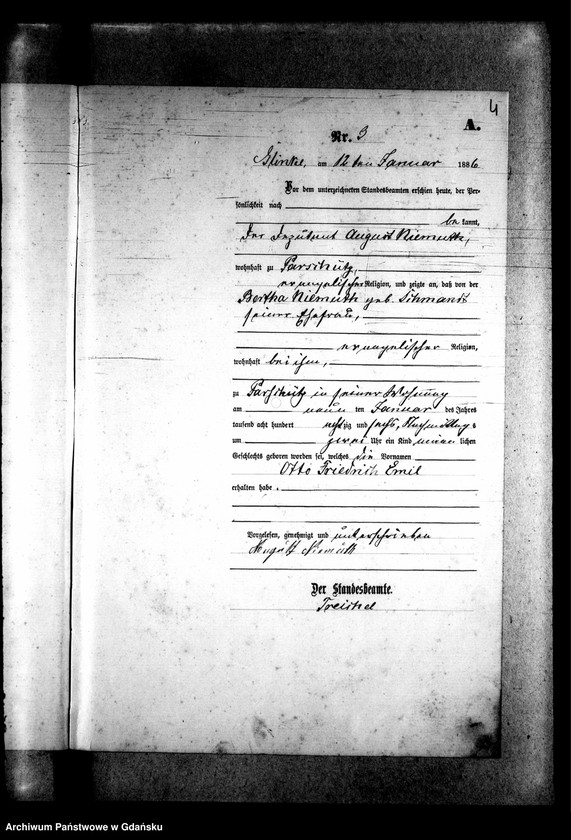 4
A.
Nr. 3
Glinke, am 12ten Januar 1886
Vor dem unterzeichneten Standesbeamten erschien heute, der Per-
sönlichkeit nach
be kannt,
der Deputant August Niemuth,
wohnhaft zu Parschütz,
evangelischer Religion, und zeigte an, daß von der
Bertha Niemuth geb.
seiner Ehefrau,
evangelischer Religion,
wohnhaft bei ihm,
zu Parschütz in seiner Wohnung
am neun ten Januar des Jahres
tausend acht hundert achtzig und sechs, Nachmittags
um zwei Uhr ein Kind männ lichen
Geschlechts geboren worden sei, welches die Vornamen
Otto Friedrich Emil
erhalten habe.
Vorgelesen, genehmigt und unterschrieben
August Niemuth
Der Standesbeamte.
Treichel
Archiwum Państwowe w Gdańsku